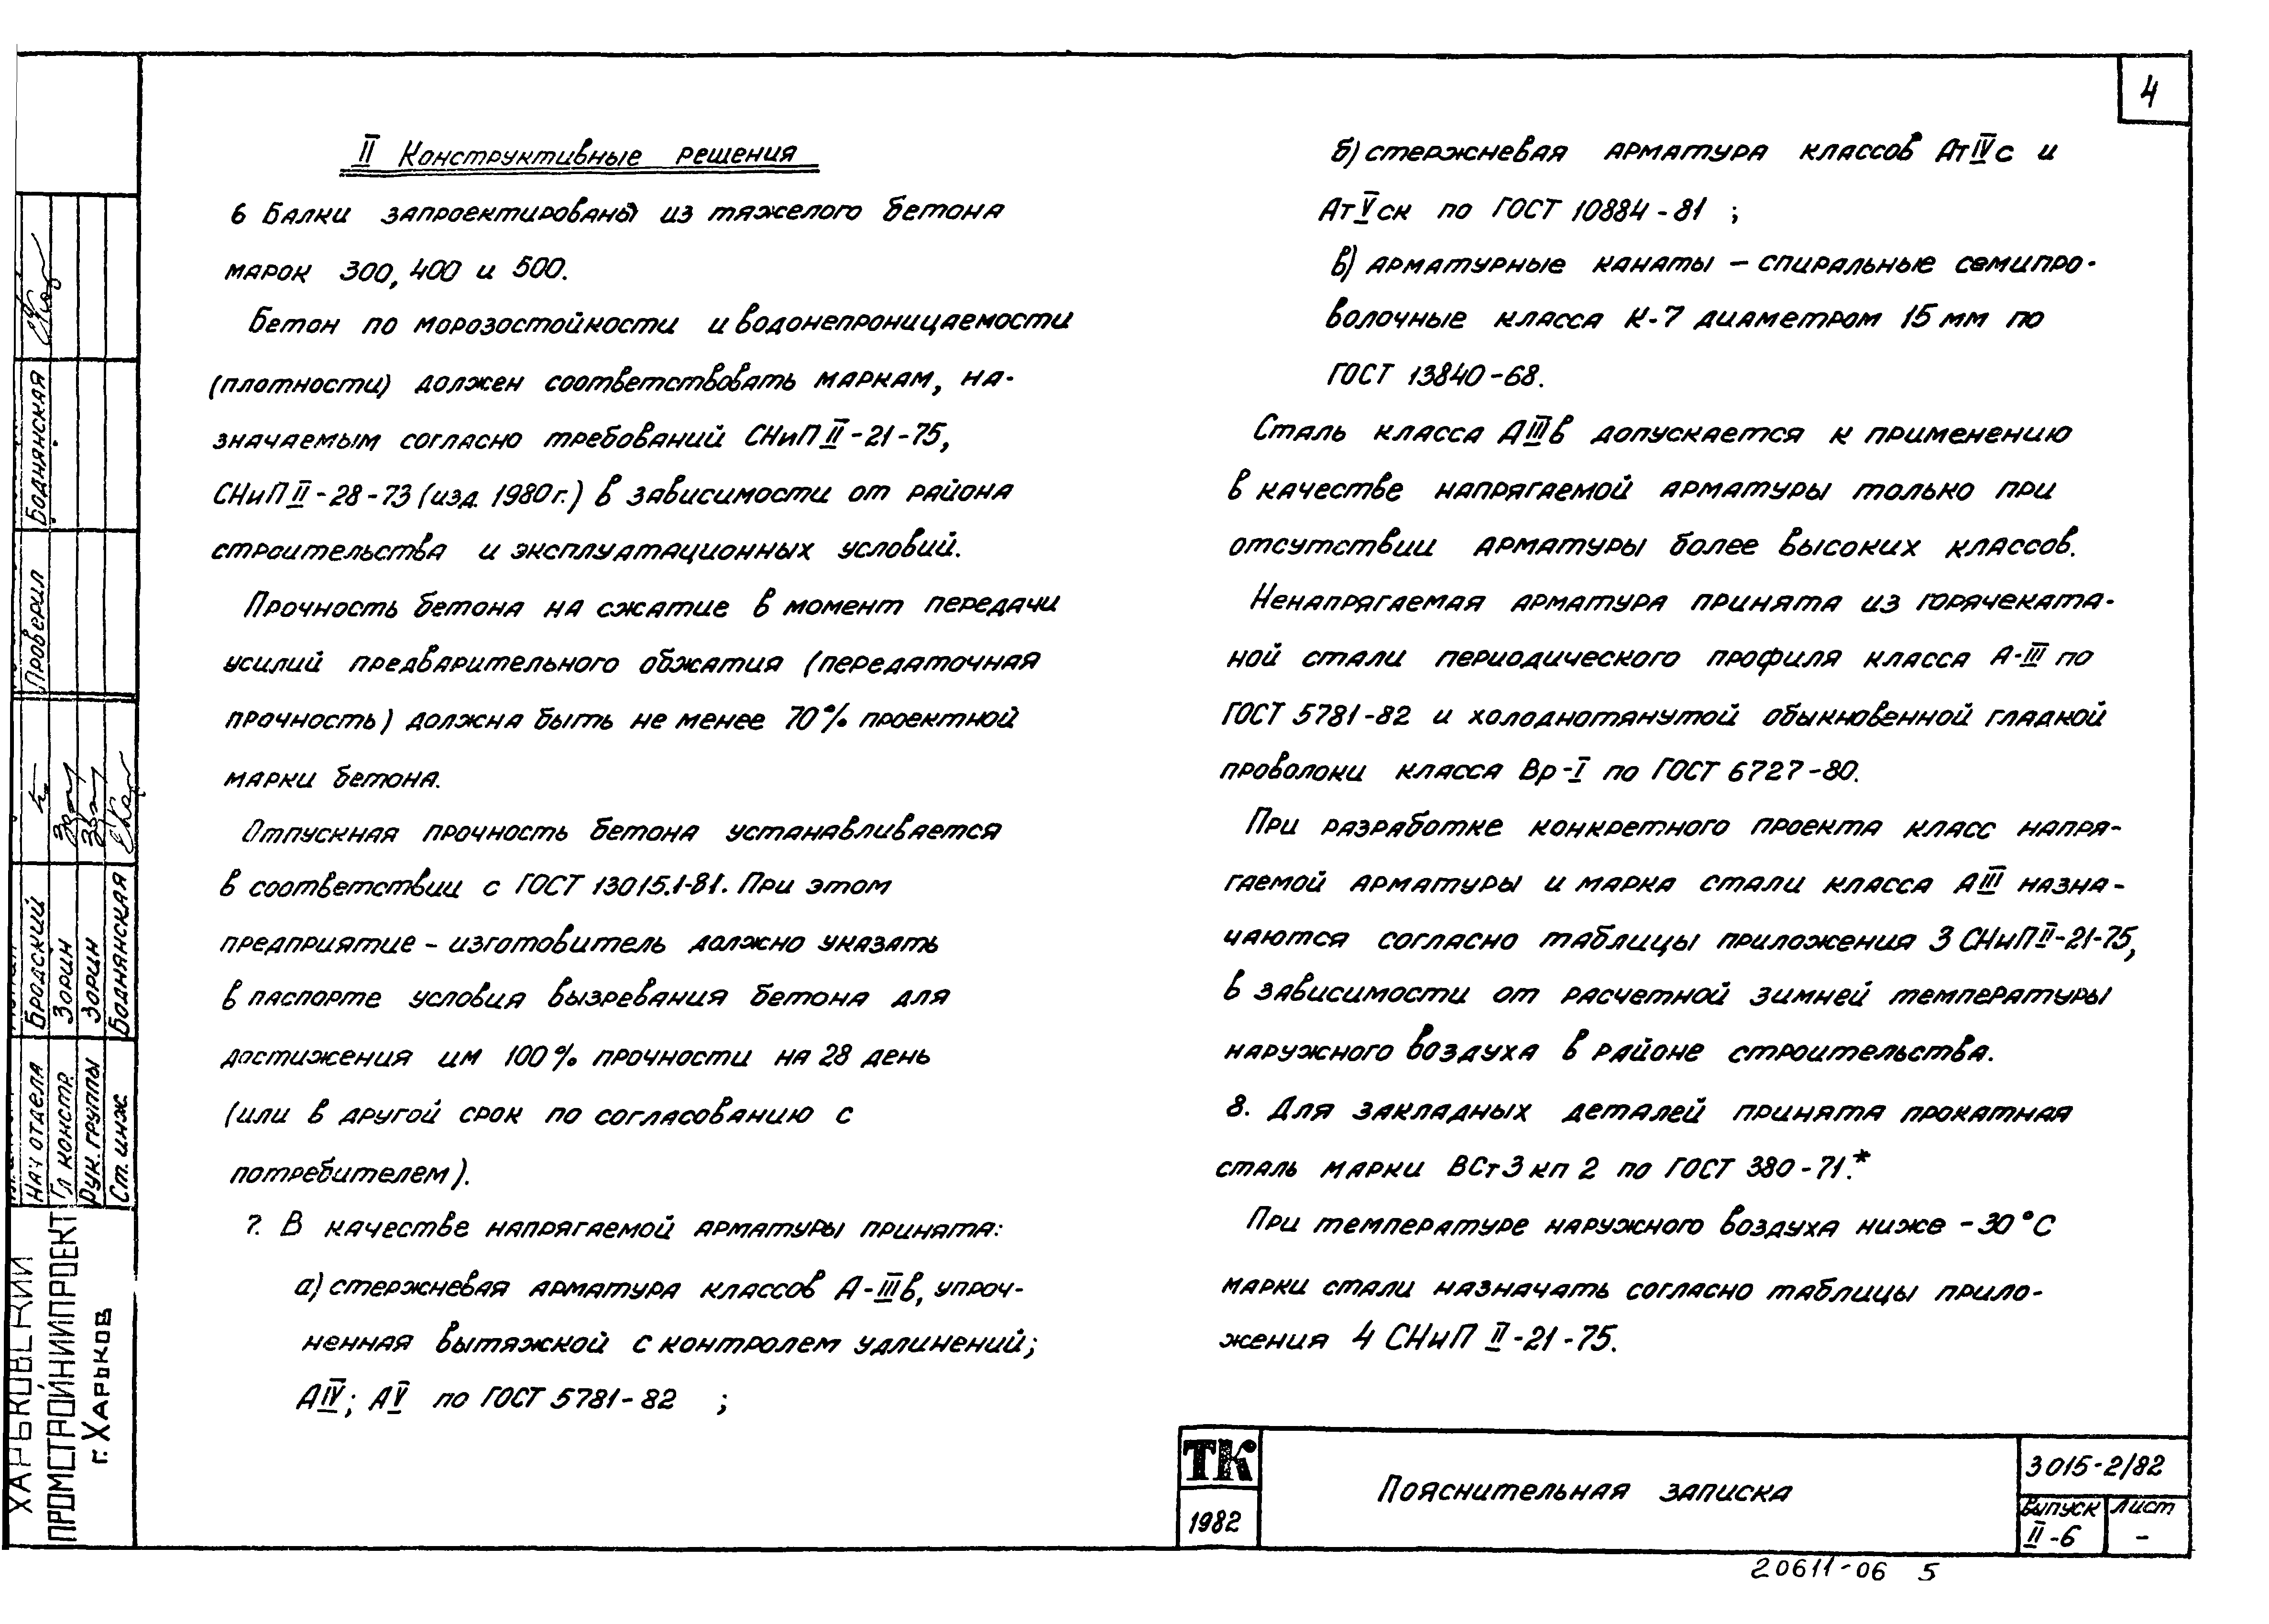 4
II Конструктивные решения
6 Балки запроектированы из тяжелого бетона
марок 300, 400 и 500.
Бетон по морозостойкости и водонепроницаемости
(плотности) должен соответствовать маркам, на-
значаемым согласно требований СНиП II-21-75,
СНиП II-28-73 (изд. 1980г.) в зависимости от района
строительства и эксплуатационных условий.
Прочность бетона на сжатие в момент передачи
усилий предварительного обжатия (передаточная
прочность) должна быть не менее 70% проектной
марки бетона.
Отпускная прочность бетона устанавливается
в соответствии с ГОСТ 13015.1-81. При этом
предприятие - изготовитель должно указать
в паспорте условия вызревания бетона для
достижения им 100% прочности на 28 день
(или в другой срок по согласованию с
потребителем).
7. В качестве напрягаемой арматуры принята:
а) стержневая арматура классов А-IIIв, упроч-
ненная вытяжкой с контролем удлинений;
АIV; АV по ГОСТ 5781-82 ;
б) стержневая арматура классов АтIVс и
АтVск по ГОСТ 10884-81 ;
в) арматурные канаты - спиральные семипро-
волочные класса К-7 диаметром 15 мм по
ГОСТ 13840-68.
Сталь класса АIIIв допускается к применению
в качестве напрягаемой арматуры только при
отсутствии арматуры более высоких классов.
Ненапрягаемая арматура принята из горячеката-
ной стали периодического профиля класса А-III по
ГОСТ 5781-82 и холоднотянутой обыкновенной гладкой
проволоки класса Вр-I по ГОСТ 6727-80.
При разработке конкретного проекта класс напря-
гаемой арматуры и марка стали класса АIII назна-
чаются согласно таблицы приложения 3 СНиП II-21-75,
в зависимости от расчетной зимней температуры
наружного воздуха в районе строительства.
8. Для закладных деталей принята прокатная
сталь марки ВСт3кп2 по ГОСТ 380-71.*
При температуре наружного воздуха ниже -30°С
марки стали назначать согласно таблицы прило-
жения 4 СНиП II-21-75.
ТК
1982
Пояснительная записка
3 015-2/82
Выпуск
II-6
Лист
-
20611-06 5
Проверил Боднянская
Нач отдела Бродский
Гл констр. Зорин
Рук. группы Зорин
Ст. инж. Боднянская
ХАРЬКОВСКИЙ
ПРОМСТРОЙНИИПРОЕКТ
г. Харьков